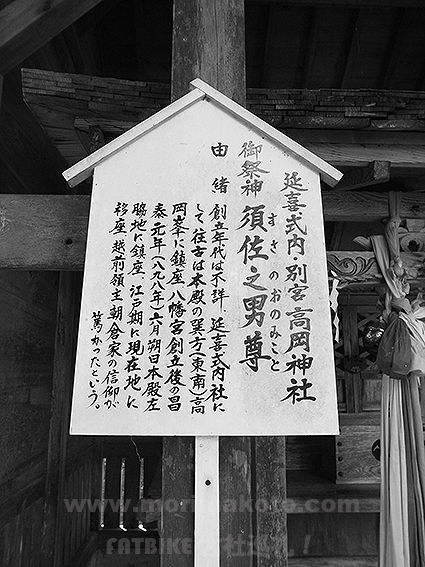 延喜式内・別宮高岡神社
御祭神 須佐之男尊
すさのおのみこと
由緒 創立年代は不詳、延喜式内社に
して往古は本殿の巽方(東南)高
岡峯に鎮座、八幡宮創立後の昌
泰元年(八九八年)六月朔日本殿左
脇地に鎮座、江戸期に現在地に
移座、越前領主朝倉家の信仰が
篤かったという。
FATBIKE